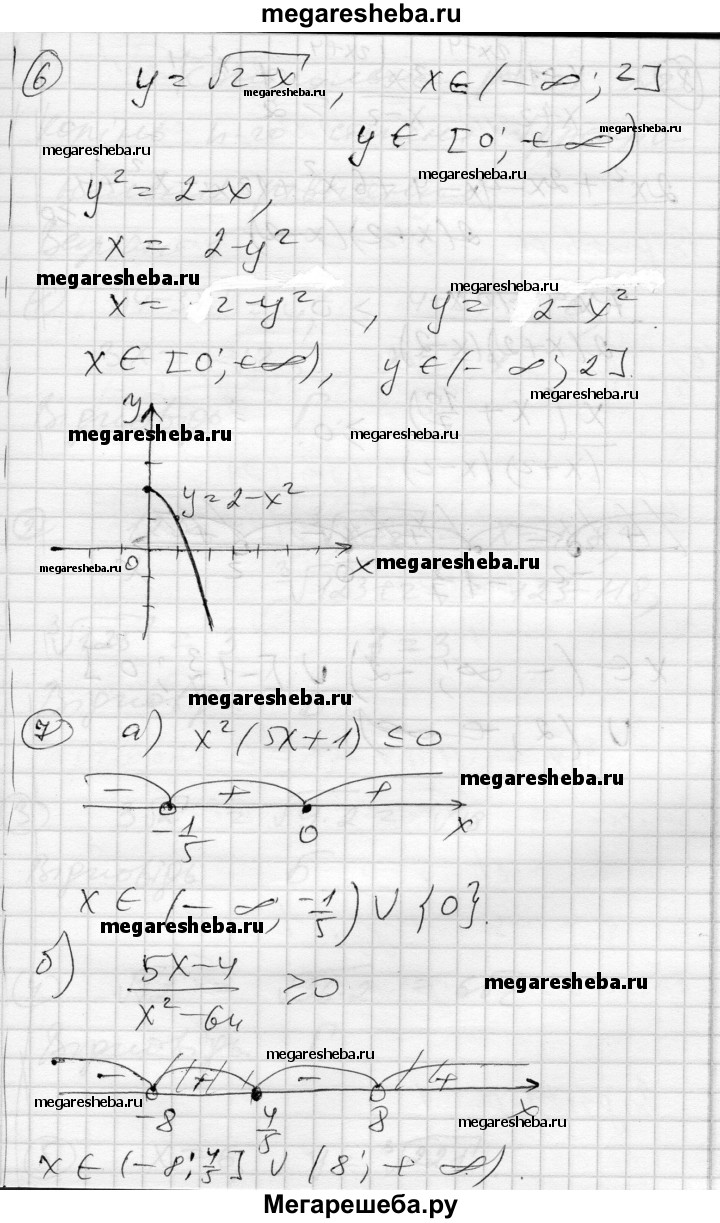 megaresheba.ru
6 y = √2-x, x ∈ (-∞; 2]
megaresheba.ru
megaresheba.ru
y ∈ [0; +∞)
megaresheba.ru
megaresheba.ru
y² = 2-x,
x = 2-y²
megaresheba.ru
megaresheba.ru
x = 2-y², y = 2-x²
x ∈ [0; +∞), y ∈ (-∞; 2].
megaresheba.ru
y
megaresheba.ru
megaresheba.ru
y=2-x²
0 x
megaresheba.ru
megaresheba.ru
megaresheba.ru
7 а) x²(5x+1) ≤ 0
megaresheba.ru
- + +
-1/5 0 x
x ∈ (-∞; -1/5) ∪ {0}.
megaresheba.ru
б) 5x-4 / x²-64 ≥ 0
megaresheba.ru
megaresheba.ru
- + - +
megaresheba.ru
-8 4/5 8 x
megaresheba.ru
x ∈ (-8; 4/5] ∪ (8; +∞).
Мегарешеба.ру